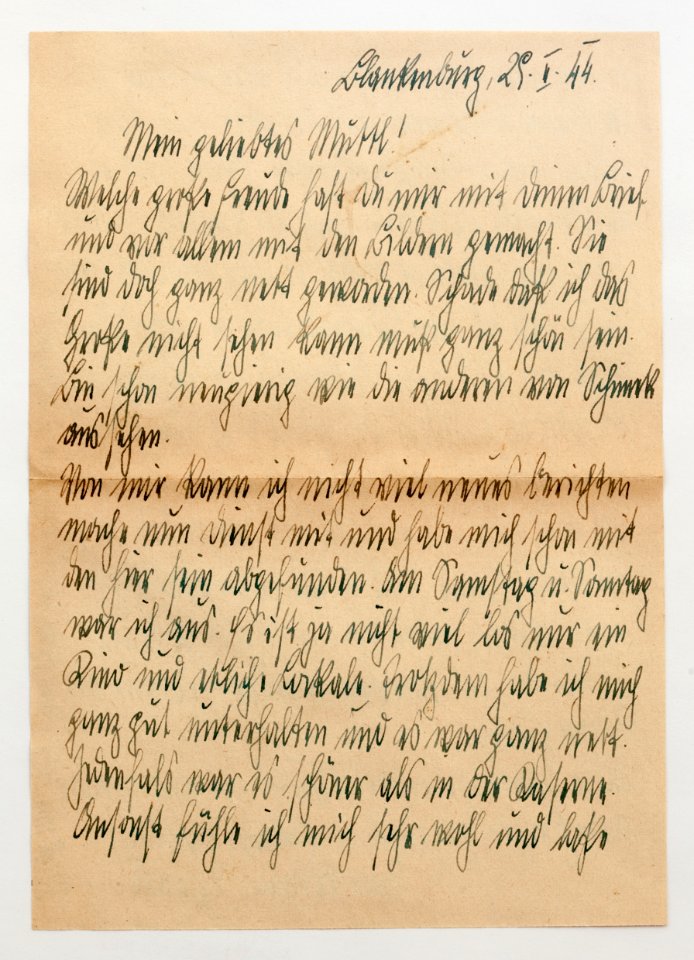 Blankenburg, 29. V. 44.
Mein geliebtes Muttl!
Welche große Freude hast Du mir mit deinem Brief
und vor allem mit den Bildern gemacht. Sie
sind doch ganz nett geworden. Schade daß ich das
Große nicht sehen kann muß ganz schön sein.
Bin schon neugierig wie die anderen von
aussehen.
Von mir kann ich nicht viel neues berichten
mache nun Dienst mit und habe mich schon mit
den hier sein abgefunden. Am Samstag u. Sonntag
war ich aus. Es ist ja nicht viel los nur ein
Kino und etliche Lokale. Trotzdem habe ich mich
ganz gut unterhalten und es war ganz nett.
Jedenfals war es schöner als in der Kaserne.
Ansonst fühle ich mich sehr wohl und laße